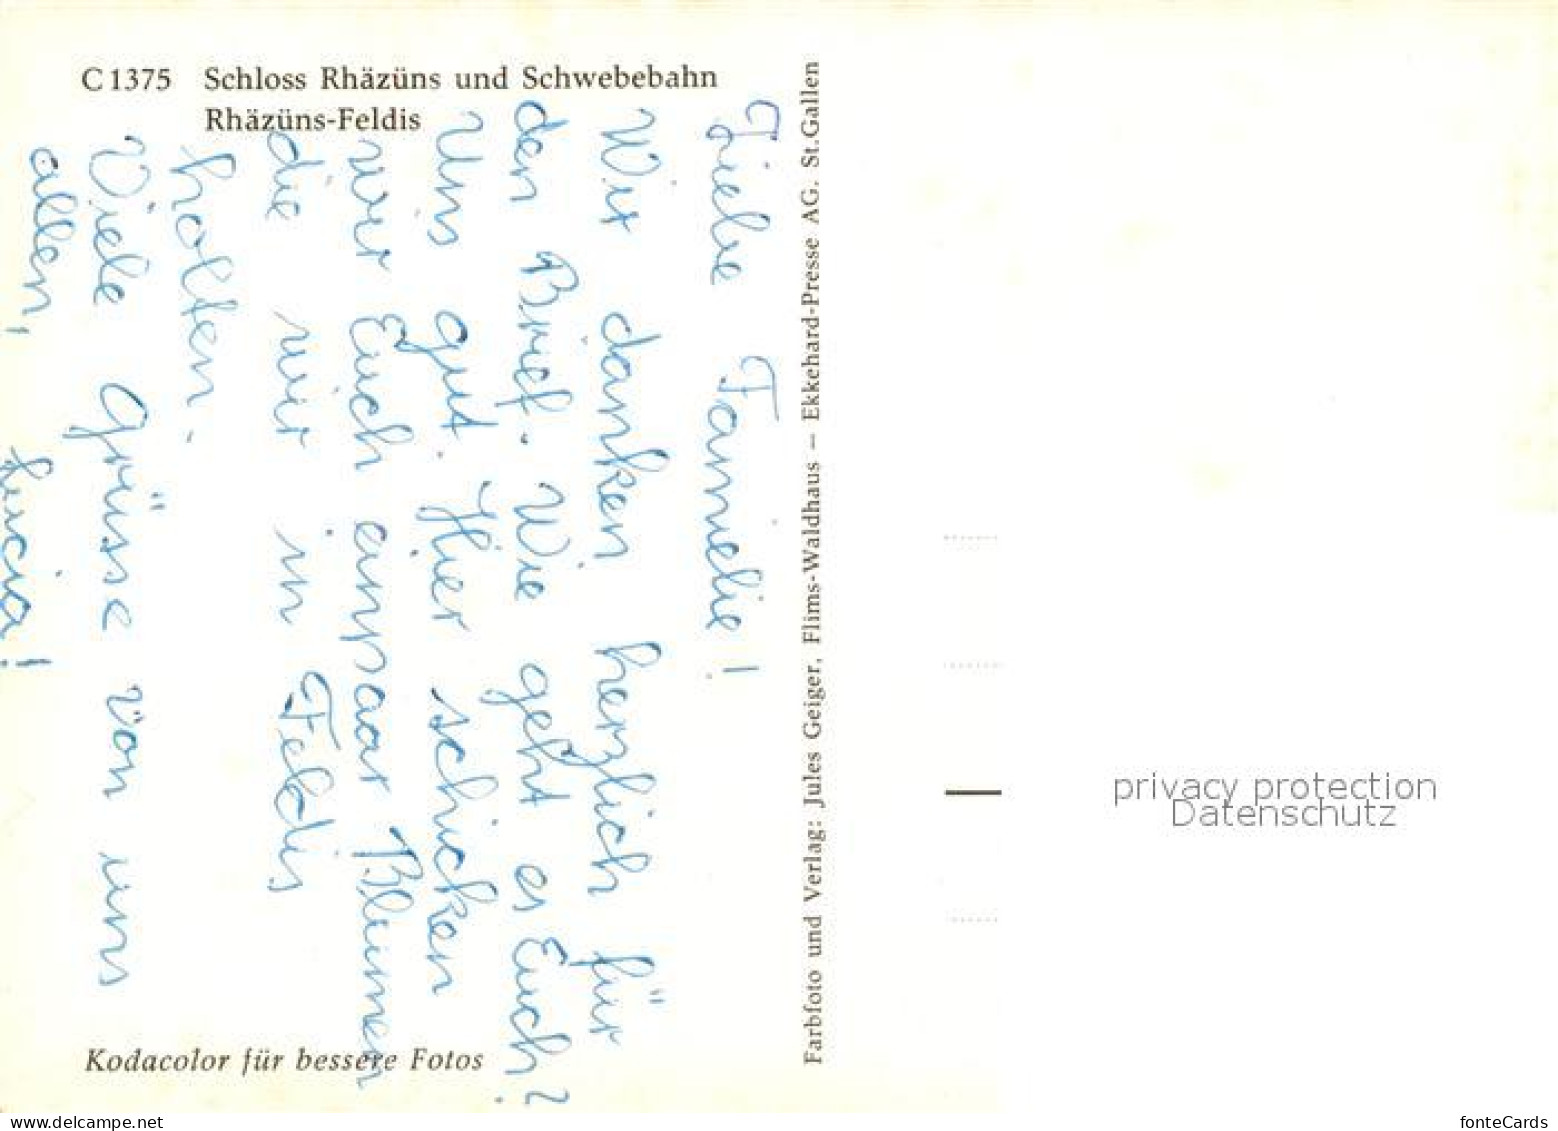 C 1375 Schloss Rhäzüns und Schwebebahn
Rhäzüns-Feldis
Liebe Familie!
Wir danken herzlich für
den Brief. Wie geht es Euch?
Uns gut. Hier schicken
wir Euch einpaar Blumen
die wir in Feldis
holten.
Viele Grüsse von uns
allen, Lucia!
Kodacolor für bessere Fotos
Farbfoto und Verlag: Jules Geiger, Flims-Waldhaus – Ekkehard-Presse AG. St. Gallen
privacy protection
Datenschutz
www.delcampe.net
fonteCards